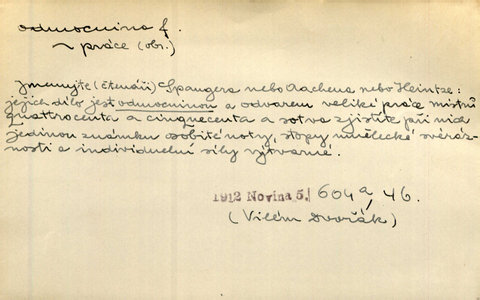 odmocnina f.
~ práce (obr.)
Jmenujte (čtenáři) Spangera nebo Aachena nebo Heintze:
jejich dílo jest odmocninou a odvarem veliké práce mistrů
quattrocenta a cinquecenta a sotva zjistíte při nich
jedinou známku osobité noty, stopy umělecké svéráz-
nosti a individuelní síly výtvarné.
1912 Novina 5. 604a, 46.
(Vilém Dvořák)